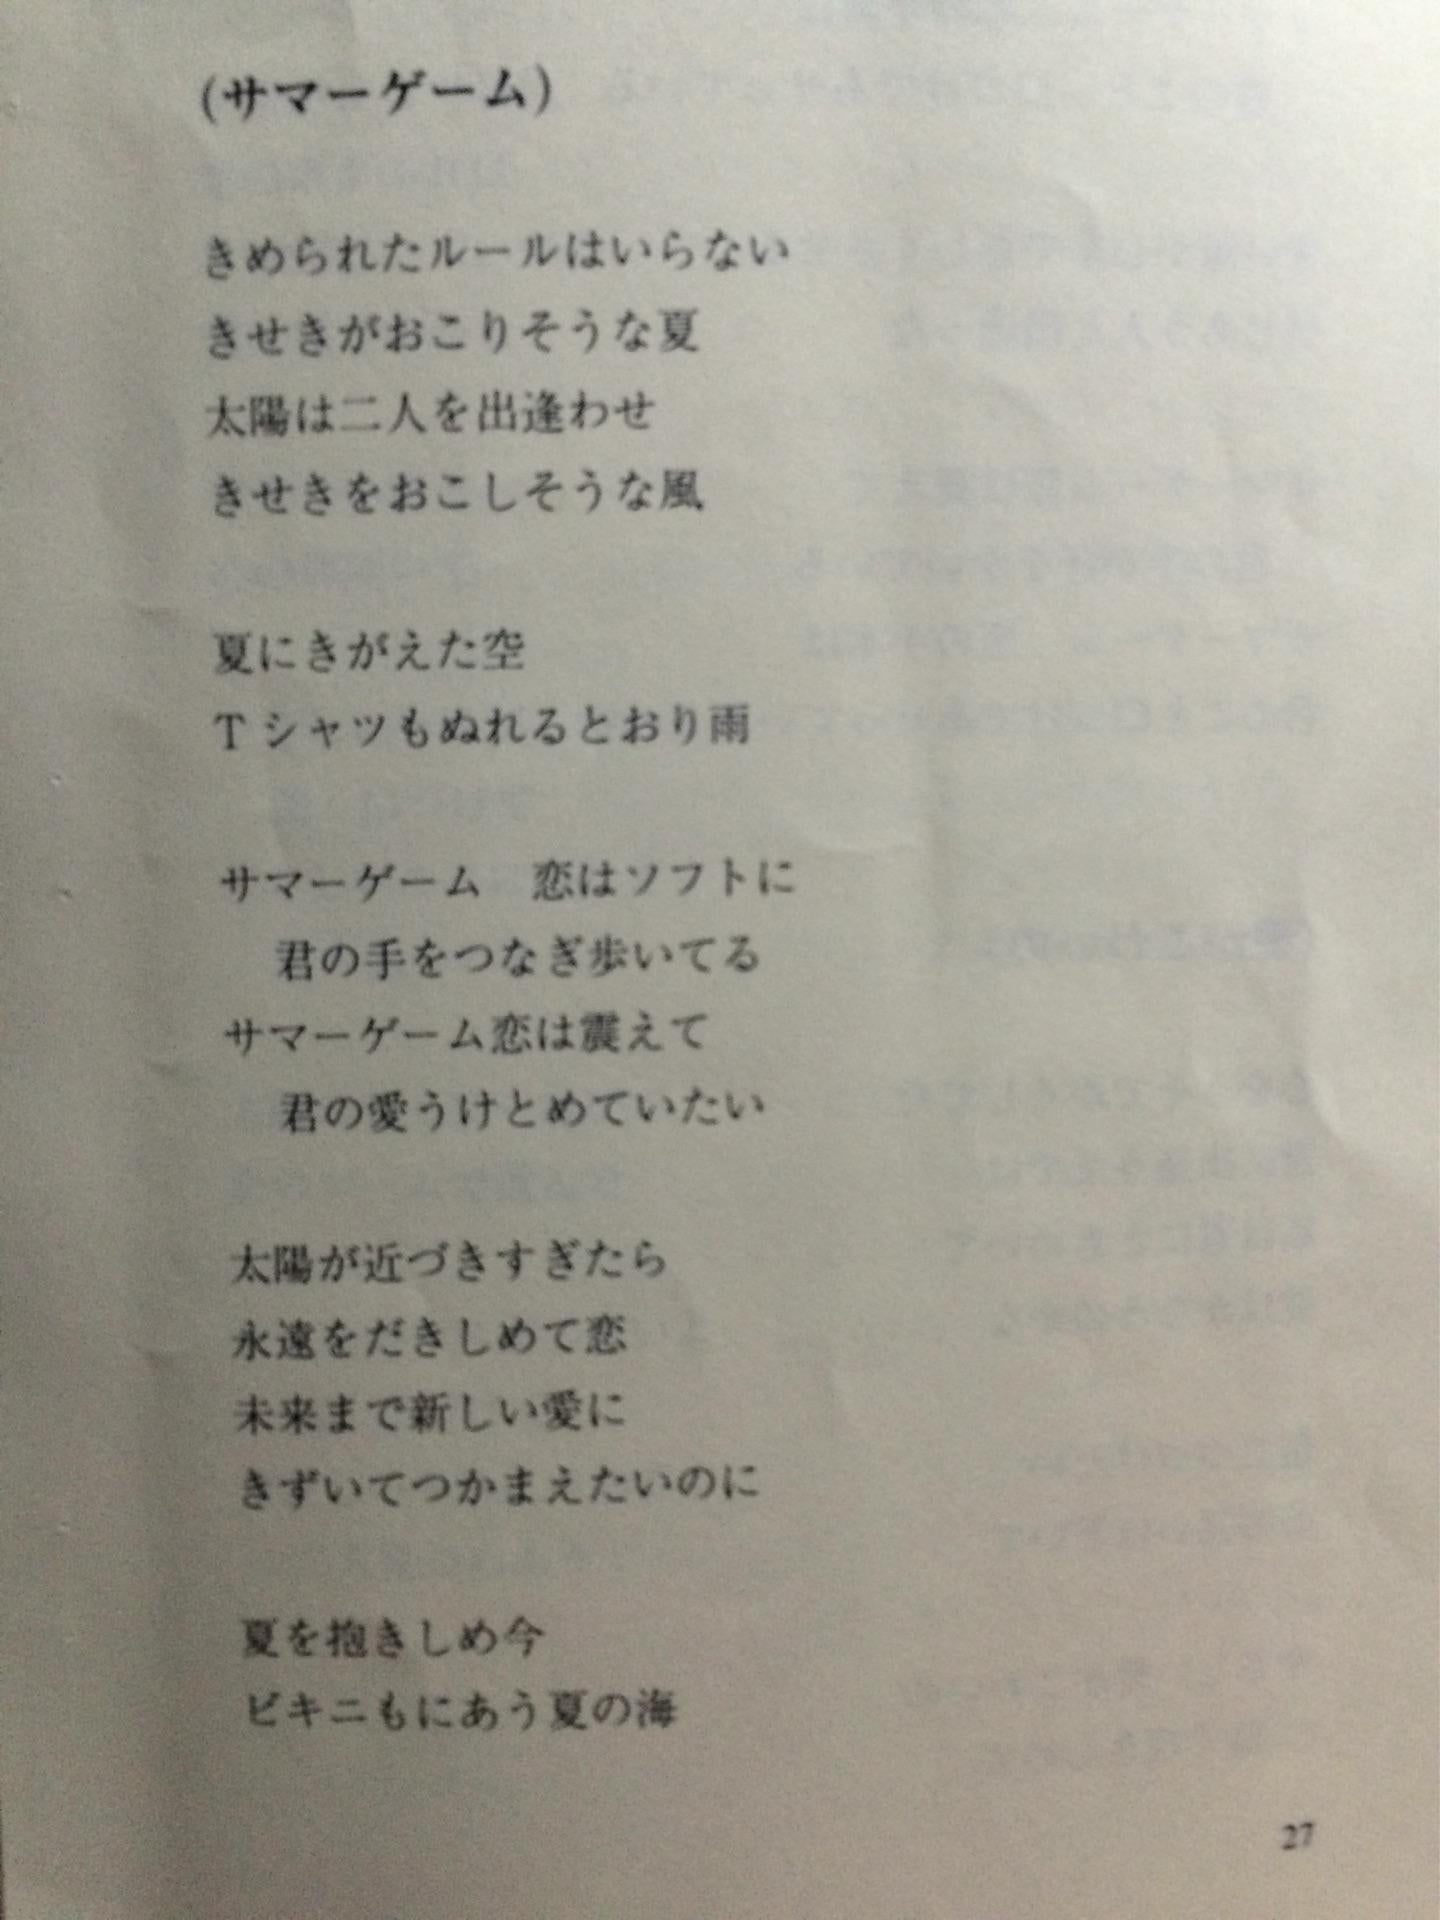 (サマーゲーム)
きめられたルールはいらない
きせきがおこりそうな夏
太陽は二人を出逢わせ
きせきをおこしそうな風
夏にきがえた空
Tシャツもぬれるとおり雨
サマーゲーム　恋はソフトに
君の手をつなぎ歩いてる
サマーゲーム恋は震えて
君の愛うけとめていたい
太陽が近づきすぎたら
永遠をだきしめて恋
未来まで新しい愛に
きずいてつかまえたいのに
夏を抱きしめ今
ビキニもにあう夏の海
27